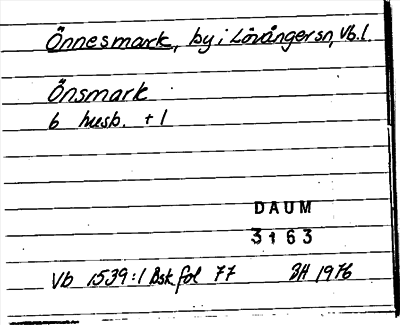 Önnesmark, by i Lövångersn, Vb. l.
Önsmark
6 husb. + 1
DAUM
3163
Vb 1539:1 Bsk fol 77 BH 1976